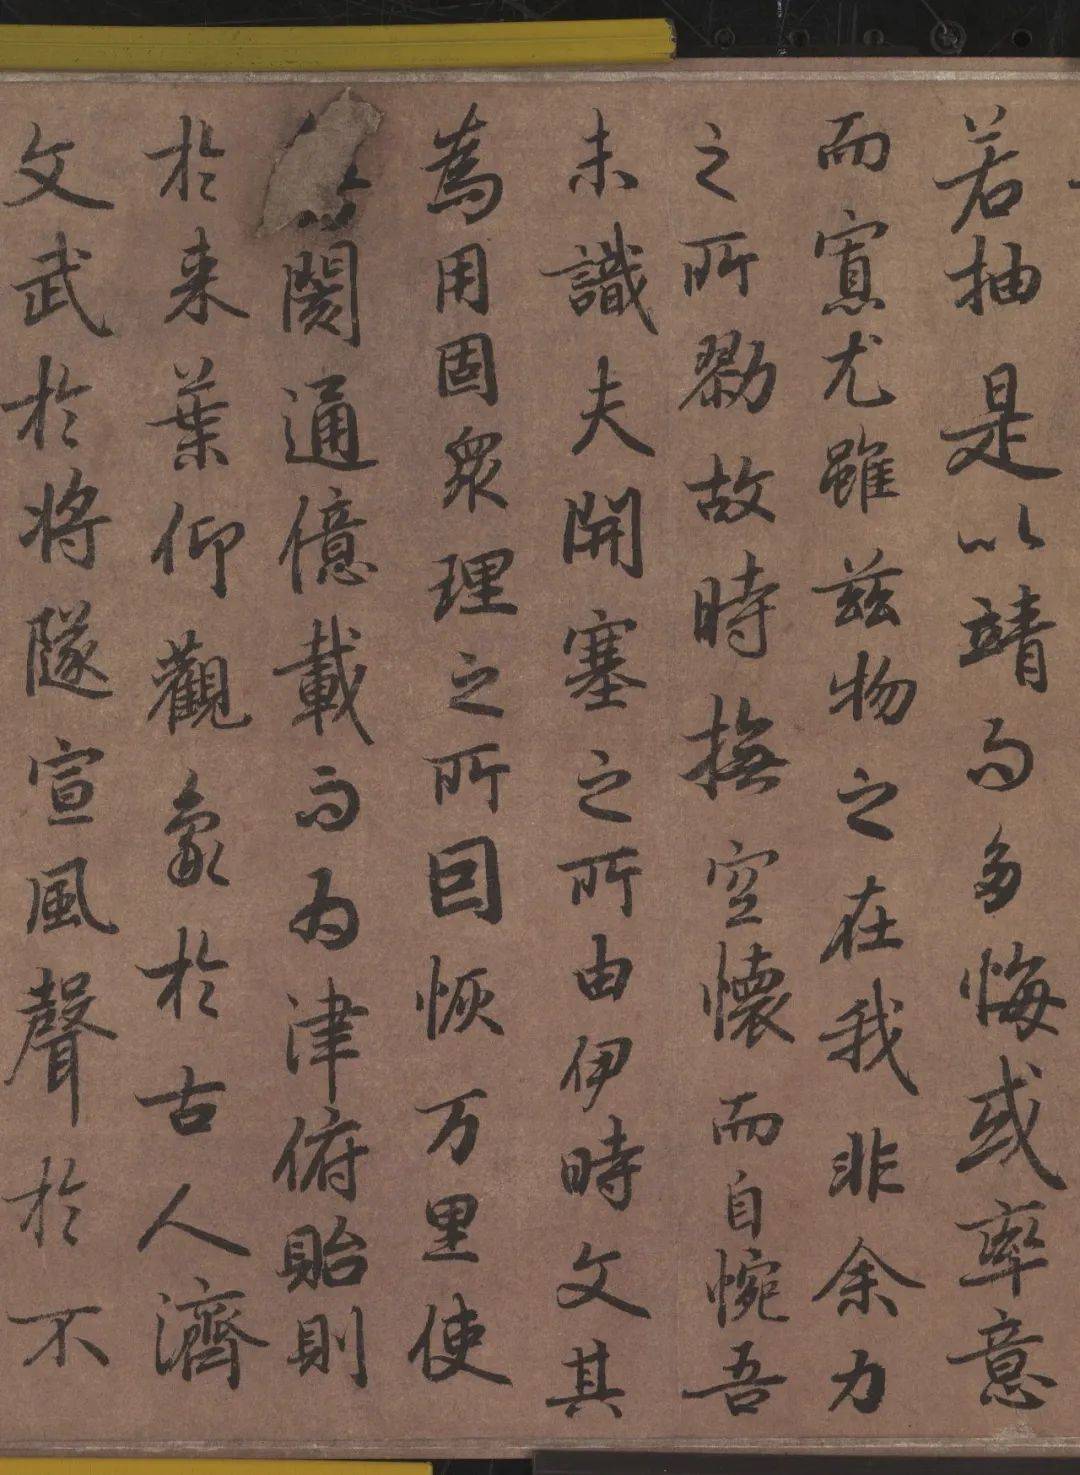 若抽是以靖而多悔或率意
而寡尤雖茲物之在我非余力
之所勠故時撫空懷而自惋吾
未識夫開塞之所由伊時文其
為用固眾理之所囙恢万里使
閡通億載而为津俯貽則
於来葉仰觀象於古人濟
文武於将隧宣風聲於不